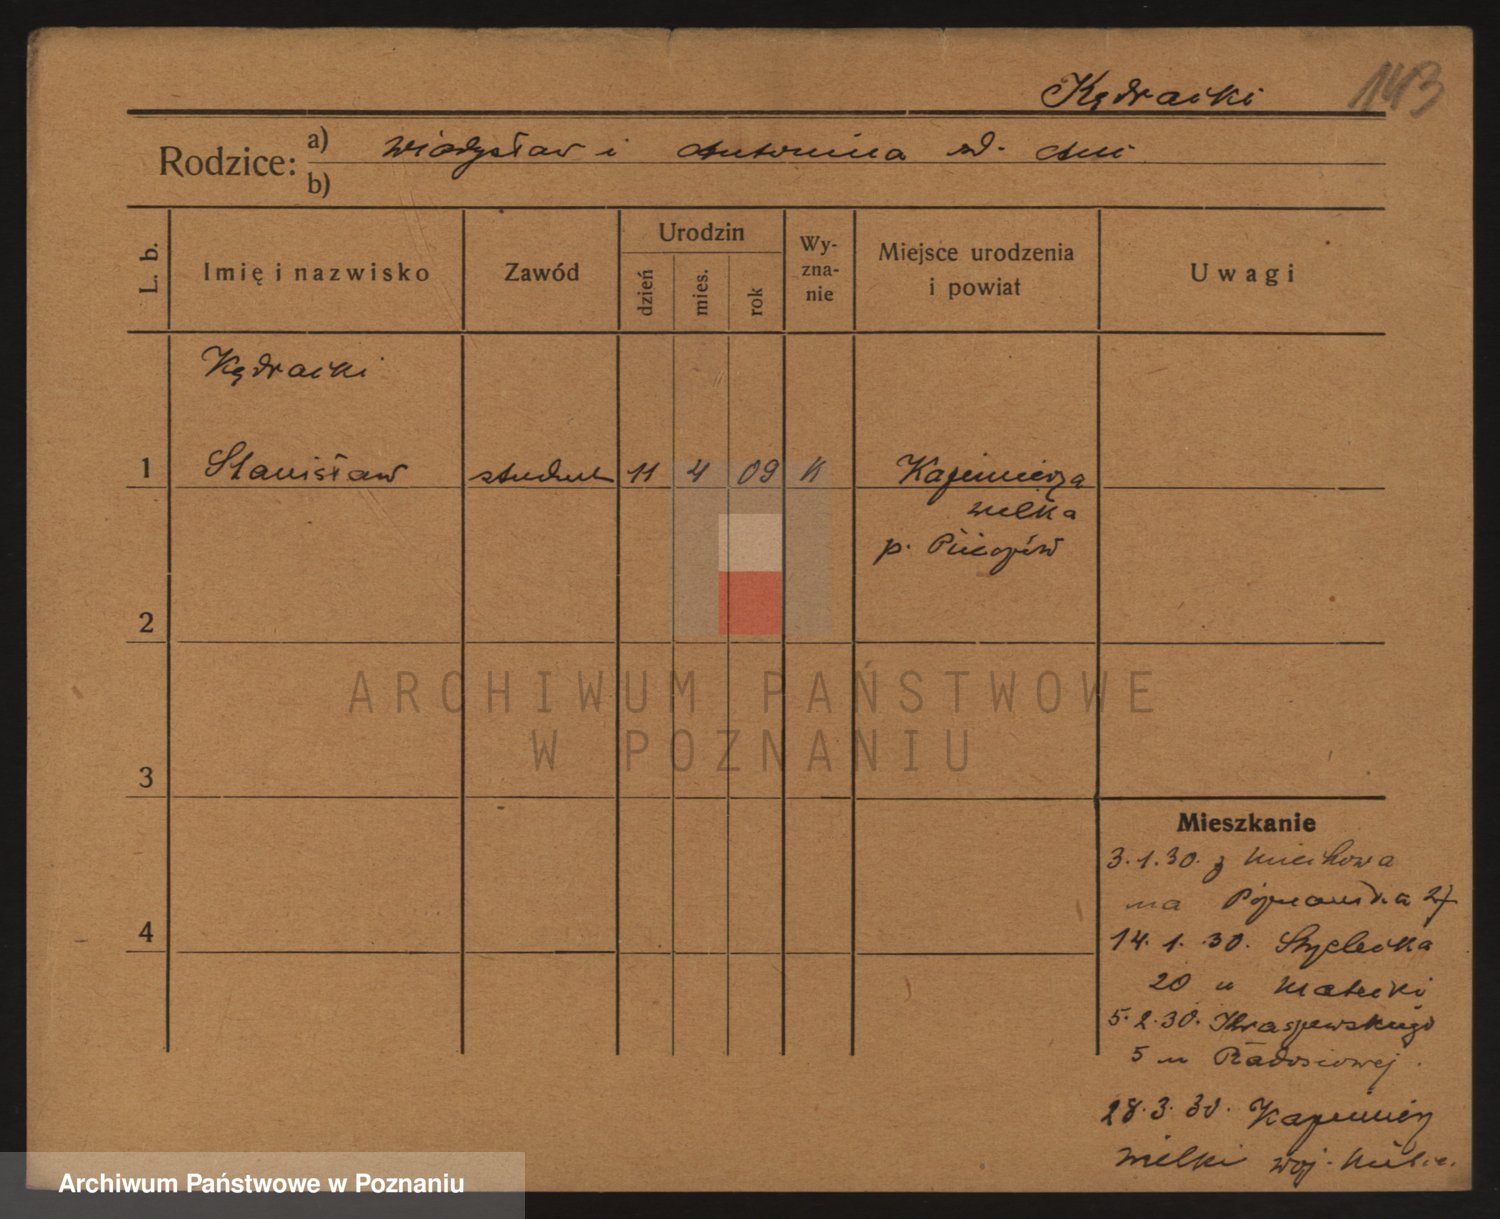 Kędracki 143
Rodzice: a) Władysław i Antonina zd. Ani
b)
L. b. Imię i nazwisko Zawód Urodzin dzień mies. rok Wy-zna-nie Miejsce urodzenia i powiat Uwagi
Kędracki
1 Stanisław student 11 4 09 K Kazimierza
wielka
p. Pińczów
2
ARCHIWUM PAŃSTWOWE
W POZNANIU
3
Mieszkanie
3.1.30. z Miechowa
na 27
4
14.1.30.
20 u Matecki
5.2.30. Kraszewskiego
5 u Radosiowej.
28.3.30. Kazimierz
wielki woj. Kielec.
Archiwum Państwowe w Poznaniu